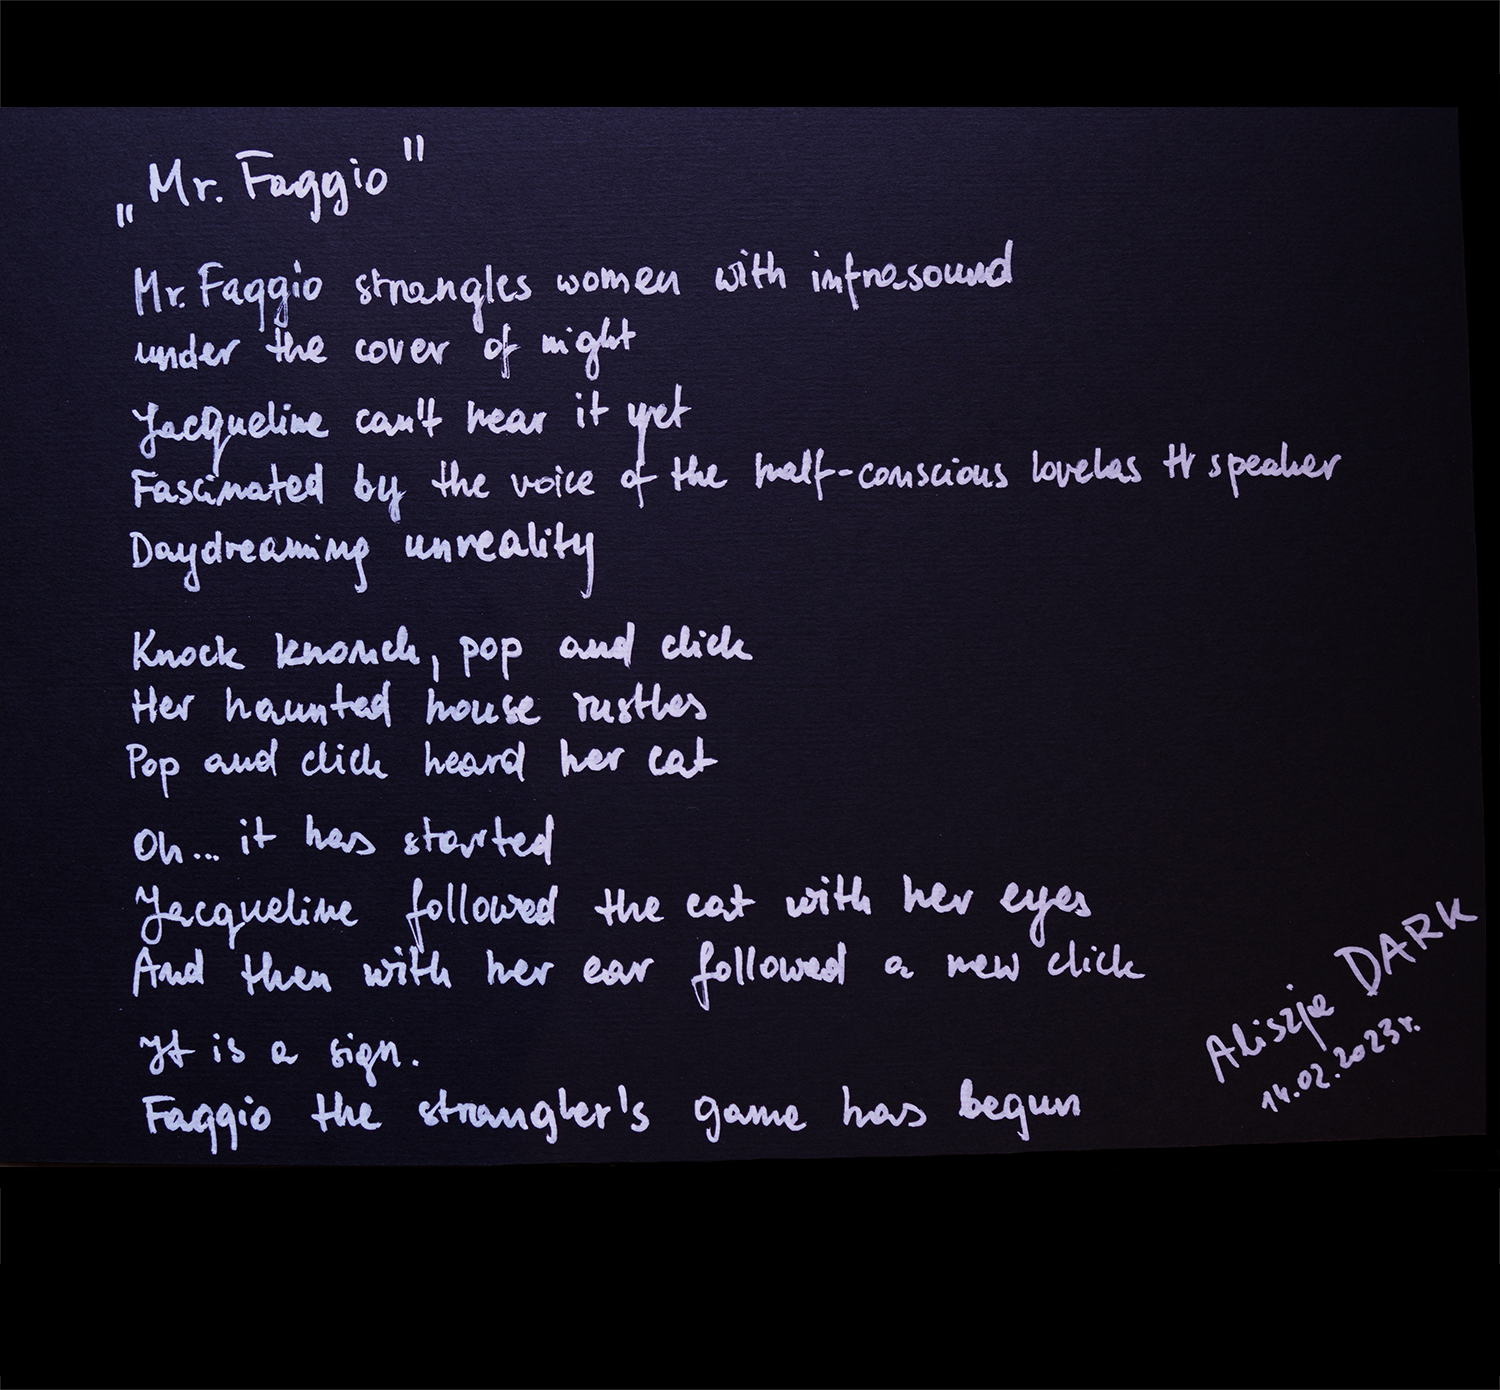 „Mr. Faggio"
Mr. Faggio strangles women with infrasound
under the cover of night
Jacqueline can't hear it yet
Fascinated by the voice of the half-conscious lovelas tr speaker
Daydreaming unreality
Knock knock, pop and click
Her haunted house rustles
Pop and click heard her cat
Oh... it has started
Jacqueline followed the cat with her eyes
And then with her ear followed a new click
It is a sign.
Faggio the strangler's game has begun
Aliszja DARK
14.02.2023r.